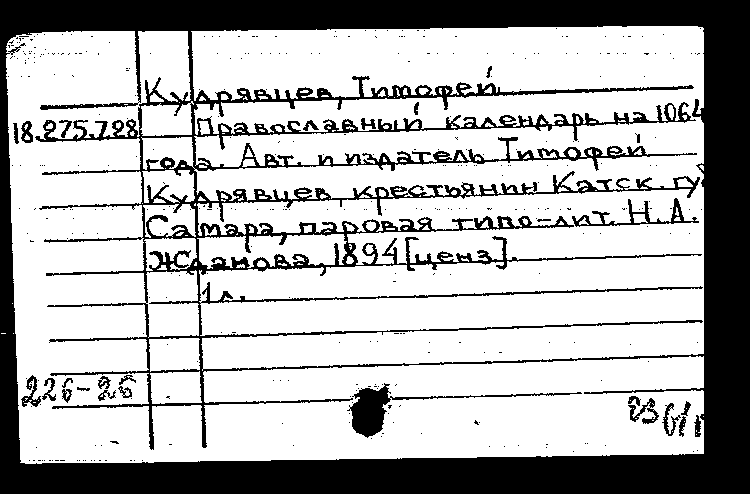 Кудрявцев, Тимофей
18.275.728 Православный календарь на 1064
года. Авт. и издатель Тимофей
Кудрявцев, крестьянин Катск. гу
Самара, паровая типо-лит. Н.А.
Жданова, 1894 [ценз].
1 л.
226-26